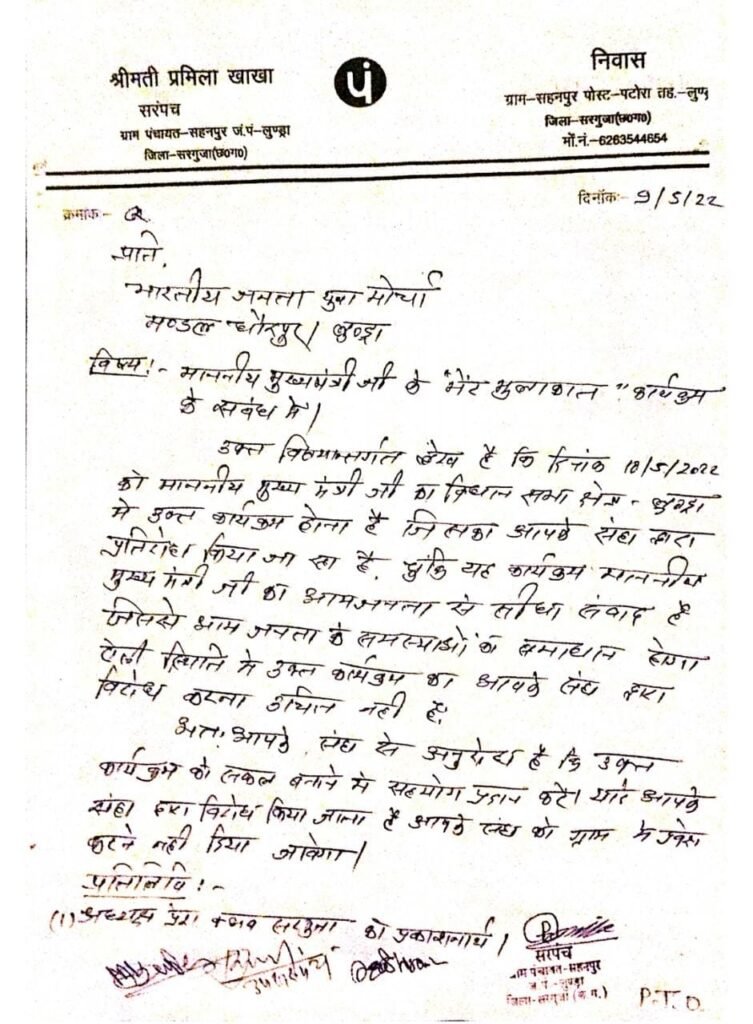 श्रीमती प्रमिला खाखा
सरंपच
ग्राम पंचायत-सहनपुर जं.पं-लुण्ड्रा
जिला-सरगुजा(छ०ग०)
पं
निवास
ग्राम-सहनपुर पोस्ट-पटोरा तह.-लुण्
जिला-सरगुजा(छ०ग०)
मों.नं.-6263544654
क्रमांक-
दिनाँक- 9/5/22
प्रति,
भारतीय जनता युवा मोर्चा
मण्डल धौरपुर/लुण्ड्रा
विषय:- माननीय मुख्यमंत्री जी के "भेंट मुलाकात" कार्यक्रम
के संबंध में।
उक्त विषयान्तर्गत लेख है कि दिनांक 10/5/2022
को माननीय मुख्य मंत्री जी का विधान सभा क्षेत्र - लुण्ड्रा
मे उक्त कार्यक्रम होना है जिसका आपके संघ द्वारा
प्रतिरोध किया जा रहा है. चुंकि यह कार्यक्रम माननीय
मुख्य मंत्री जी का आमजनता से सीधा संवाद है
जिससे आम जनता के समस्याओं का समाधान होगा
ऐसी स्थिति मे उक्त कार्यक्रम का आपके संघ द्वारा
विरोध करना उचित नही है.
अतः आपके संघ से अनुरोध है कि उक्त
कार्यक्रम को सफल बनाने मे सहयोग प्रदान करें। यदि आपके
संघ द्वारा विरोध किया जाता है आपके संघ को ग्राम मे प्रवेश
करने नही दिया जावेगा।
प्रतिलिपि:-
(1) अध्यक्ष प्रेस क्लब सरगुजा को प्रकाशनार्थ।
उपसरपंच
सरपंच
ग्राम पंचायत-सहनपुर
ज.पं.-लुण्ड्रा
जिला-सरगुजा (छ.ग.)
P.T.O.